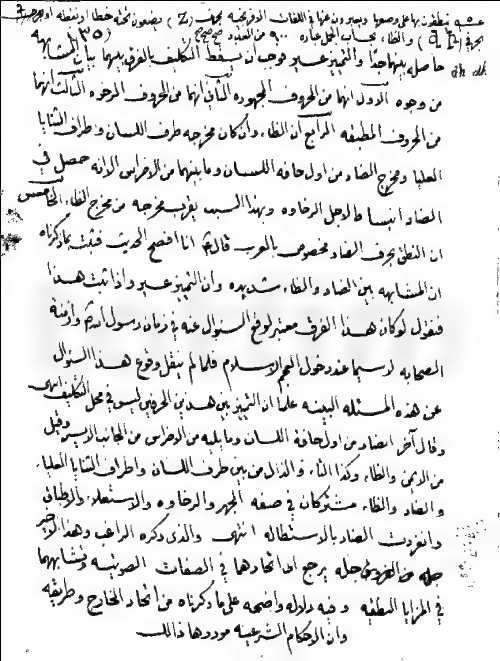 ينطقون بها على وضعها ويعبرون عنها في اللغات الاوربيه بحرف (Z) يضعون تحته خطا او نقطه او
بحرفي (dh) والظاء بحساب الجمل عباره ٩٠٠ من العدد (٣٥)
حاصله بينهما جدا والتمييز عسير فوجب ان يسقط التكليف بالفرق بينهما بيان المشابهه
من وجوه الاول انهما من الحروف المجهوره الثاني انهما من الحروف الرخوه الثالث انهما
من الحروف المطبقه الرابع ان الظاء وان كان مخرجه طرف اللسان واطراف الثنايا
العليا ومخرج الضاد من اول حافه اللسان وما يليهما من الاضراس الا انه حصل في
الضاد انبساط لاجل الرخاوه وبهذا السبب يقرب مخرجه من مخرج الظاء الخامس
ان النطق بحرف الضاد مخصوص بالعرب قال انا افصح الحديث فثبت بما ذكرناه
ان المشابهه بين الضاد والظاء شديده وان التمييز عسير واذا ثبت هذا
فنقول لو كان هذا الفرق معتبرا لوقع السؤال عنه في زمان رسول الله وازمنة
الصحابه لاسيما عند دخول العجم الاسلام فلما لم ينقل وقوع هذا السؤال
عن هذه المسئله البينه علمنا ان التمييز بين هذين الحرفين ليس في محل التكليف انتهى
وقال آخر الضاد من اول حافة اللسان وما يليه من الاضراس من الجانب الايسر وقيل
من الايمن والظاء وكذا الثاء والذال من بين طرف اللسان واطراف الثنايا العليا
والضاد والظاء مشتركان في صفه الجهر والرخاوه والاستعلاء والاطباق
وانفردت الضاد بالاستطاله انتهى والذي ذكره الراغب وهذا الاخير
جله من الفروق جله يرجع الى اتحادهما في الصفات الصوتيه وتشابههما
في المزايا النطقيه وفيه دلاله واضحه على ما ذكرناه من اتحاد المخارج وطريقه
وان الاحكام الشرعيه موردها ذالك